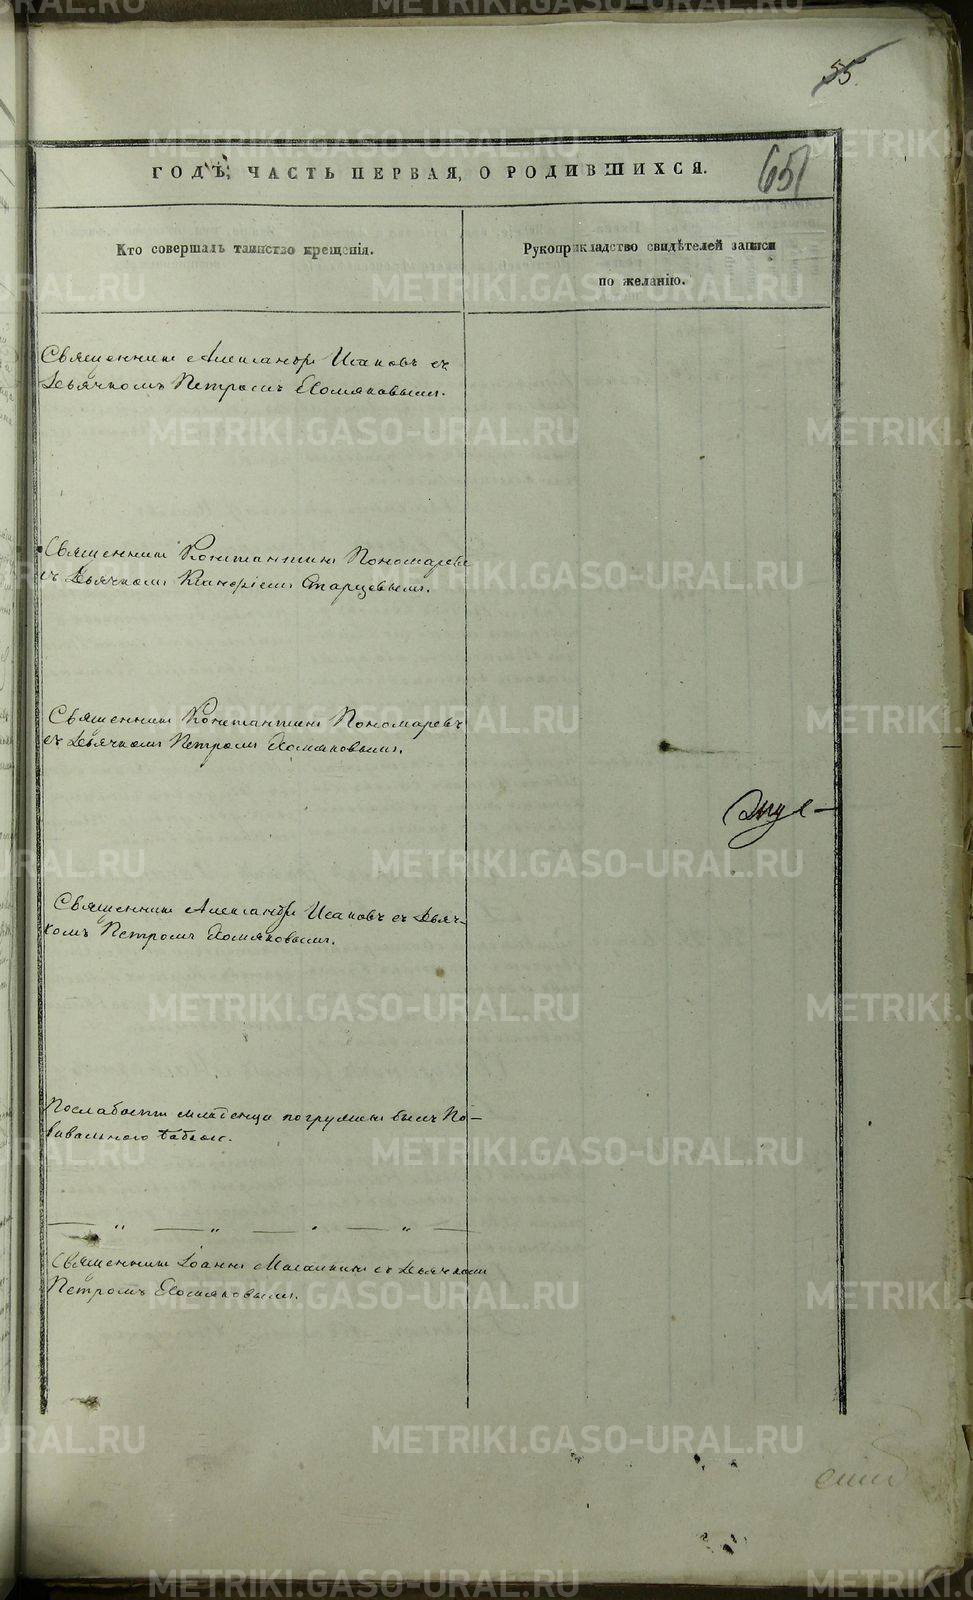 55.
ГОДЪ, ЧАСТЬ ПЕРВАЯ, О РОДИВШИХСЯ.
651
Кто совершалъ таинство крещенія.
Рукоприкладство свидѣтелей записи
по желанію.
Священникъ Александръ Исаковъ съ
Дьячкомъ Петромъ Хомяковымъ.
Священникъ Константинъ Пономаревъ
съ Дьячкомъ Старцевымъ.
Священникъ Константинъ Пономаревъ
съ Дьячкомъ Петромъ Хомяковымъ.
Священникъ Александръ Исаковъ съ Дьяч-
комъ Петромъ Хомяковымъ.
По слабости младенца погруженъ былъ По-
вивальною бабкою.
Священникъ Іоаннъ съ Дьячкомъ
Петромъ Хомяковымъ.
METRIKI.GASO-URAL.RU